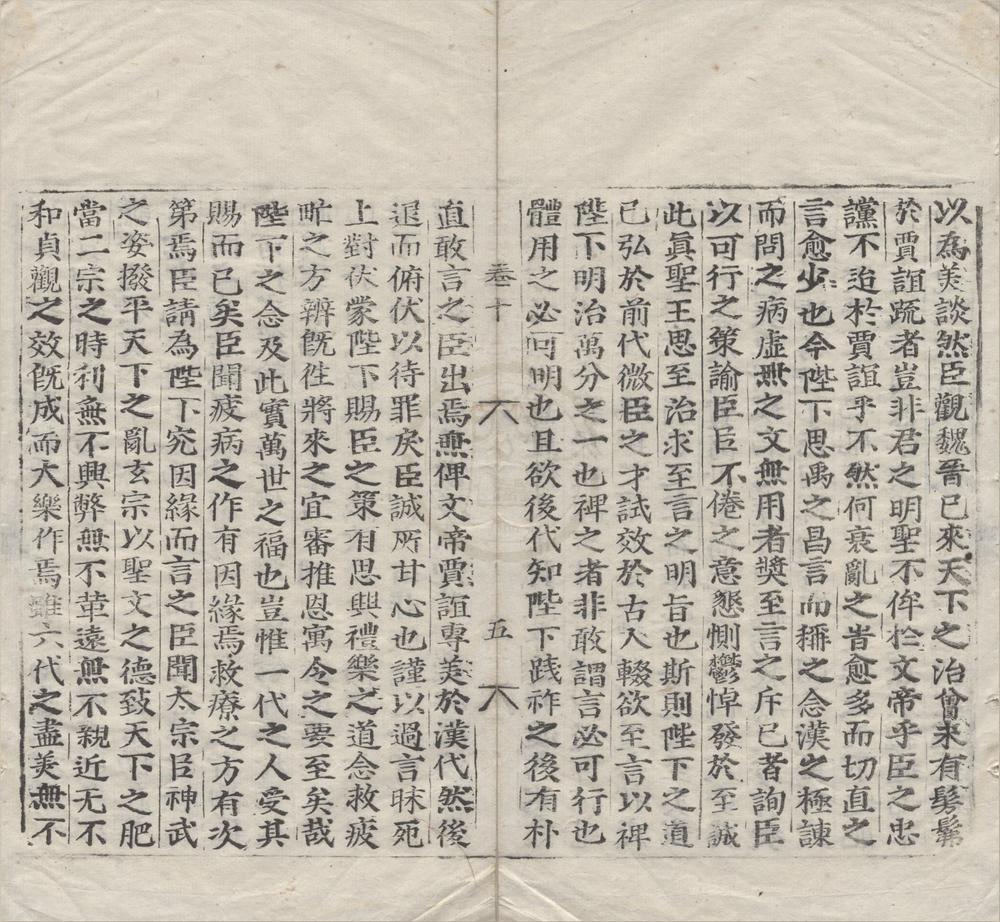 以為美談然臣觀魏晉已來天下之治曾未有髣髴
於賈誼疏者豈非君之明聖不侔扵文帝乎臣之忠
讜不迨扵賈誼乎不然何衰亂之時愈多而切直之
言愈少也今陛下思禹之昌言而稱之念漢之極諫
而問之病虛無之文無用者奬至言之斥已者詢臣
以可行之策諭臣臣不倦之意懇惻鬱悼發於至誠
此真聖王思至治求至言之明旨也斯則陛下之道
已弘於前代微臣之才試效於古人輟欲至言以裨
陛下明治萬分之一也裨之者非敢謂言必可行也
體用之必可明也且欲後代知陛下踐祚之後有朴
卷十
五
直敢言之臣出焉無俾文帝賈誼專美於漢代然後
退而俯伏以待罪戾臣誠所甘心也謹以過言昧死
上對伏蒙陛下賜臣之策有思興禮樂之道念救疲
甿之方辨旣往將來之宜審推恩寓今之要至矣哉
陛下之念及此實萬世之福也豈惟一代之人受其
賜而已矣臣聞疲病之作有因緣焉救療之方有次
第焉臣請為陛下究因緣而言之臣聞太宗以神武
之姿撥平天下之亂玄宗以聖文之德致天下之肥
當二宗之時利無不興弊無不革遠無不親近无不
和貞觀之效旣成而大樂作焉雖六代之盡美無不